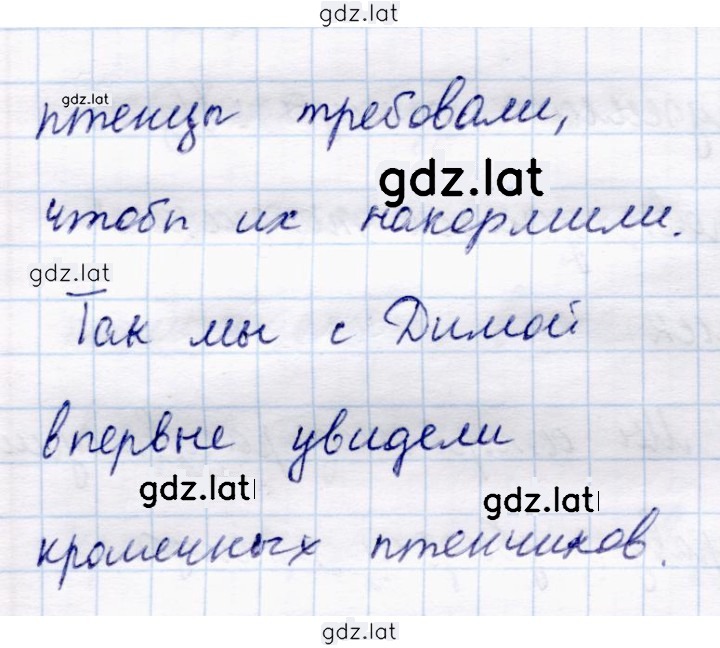 gdz.lat
gdz.lat
птенцы требовали,
gdz.lat
чтобы их накормили.
gdz.lat
Так мы с Димой
впервые увидели
gdz.lat
gdz.lat
кромечных птенчиков.
gdz.lat